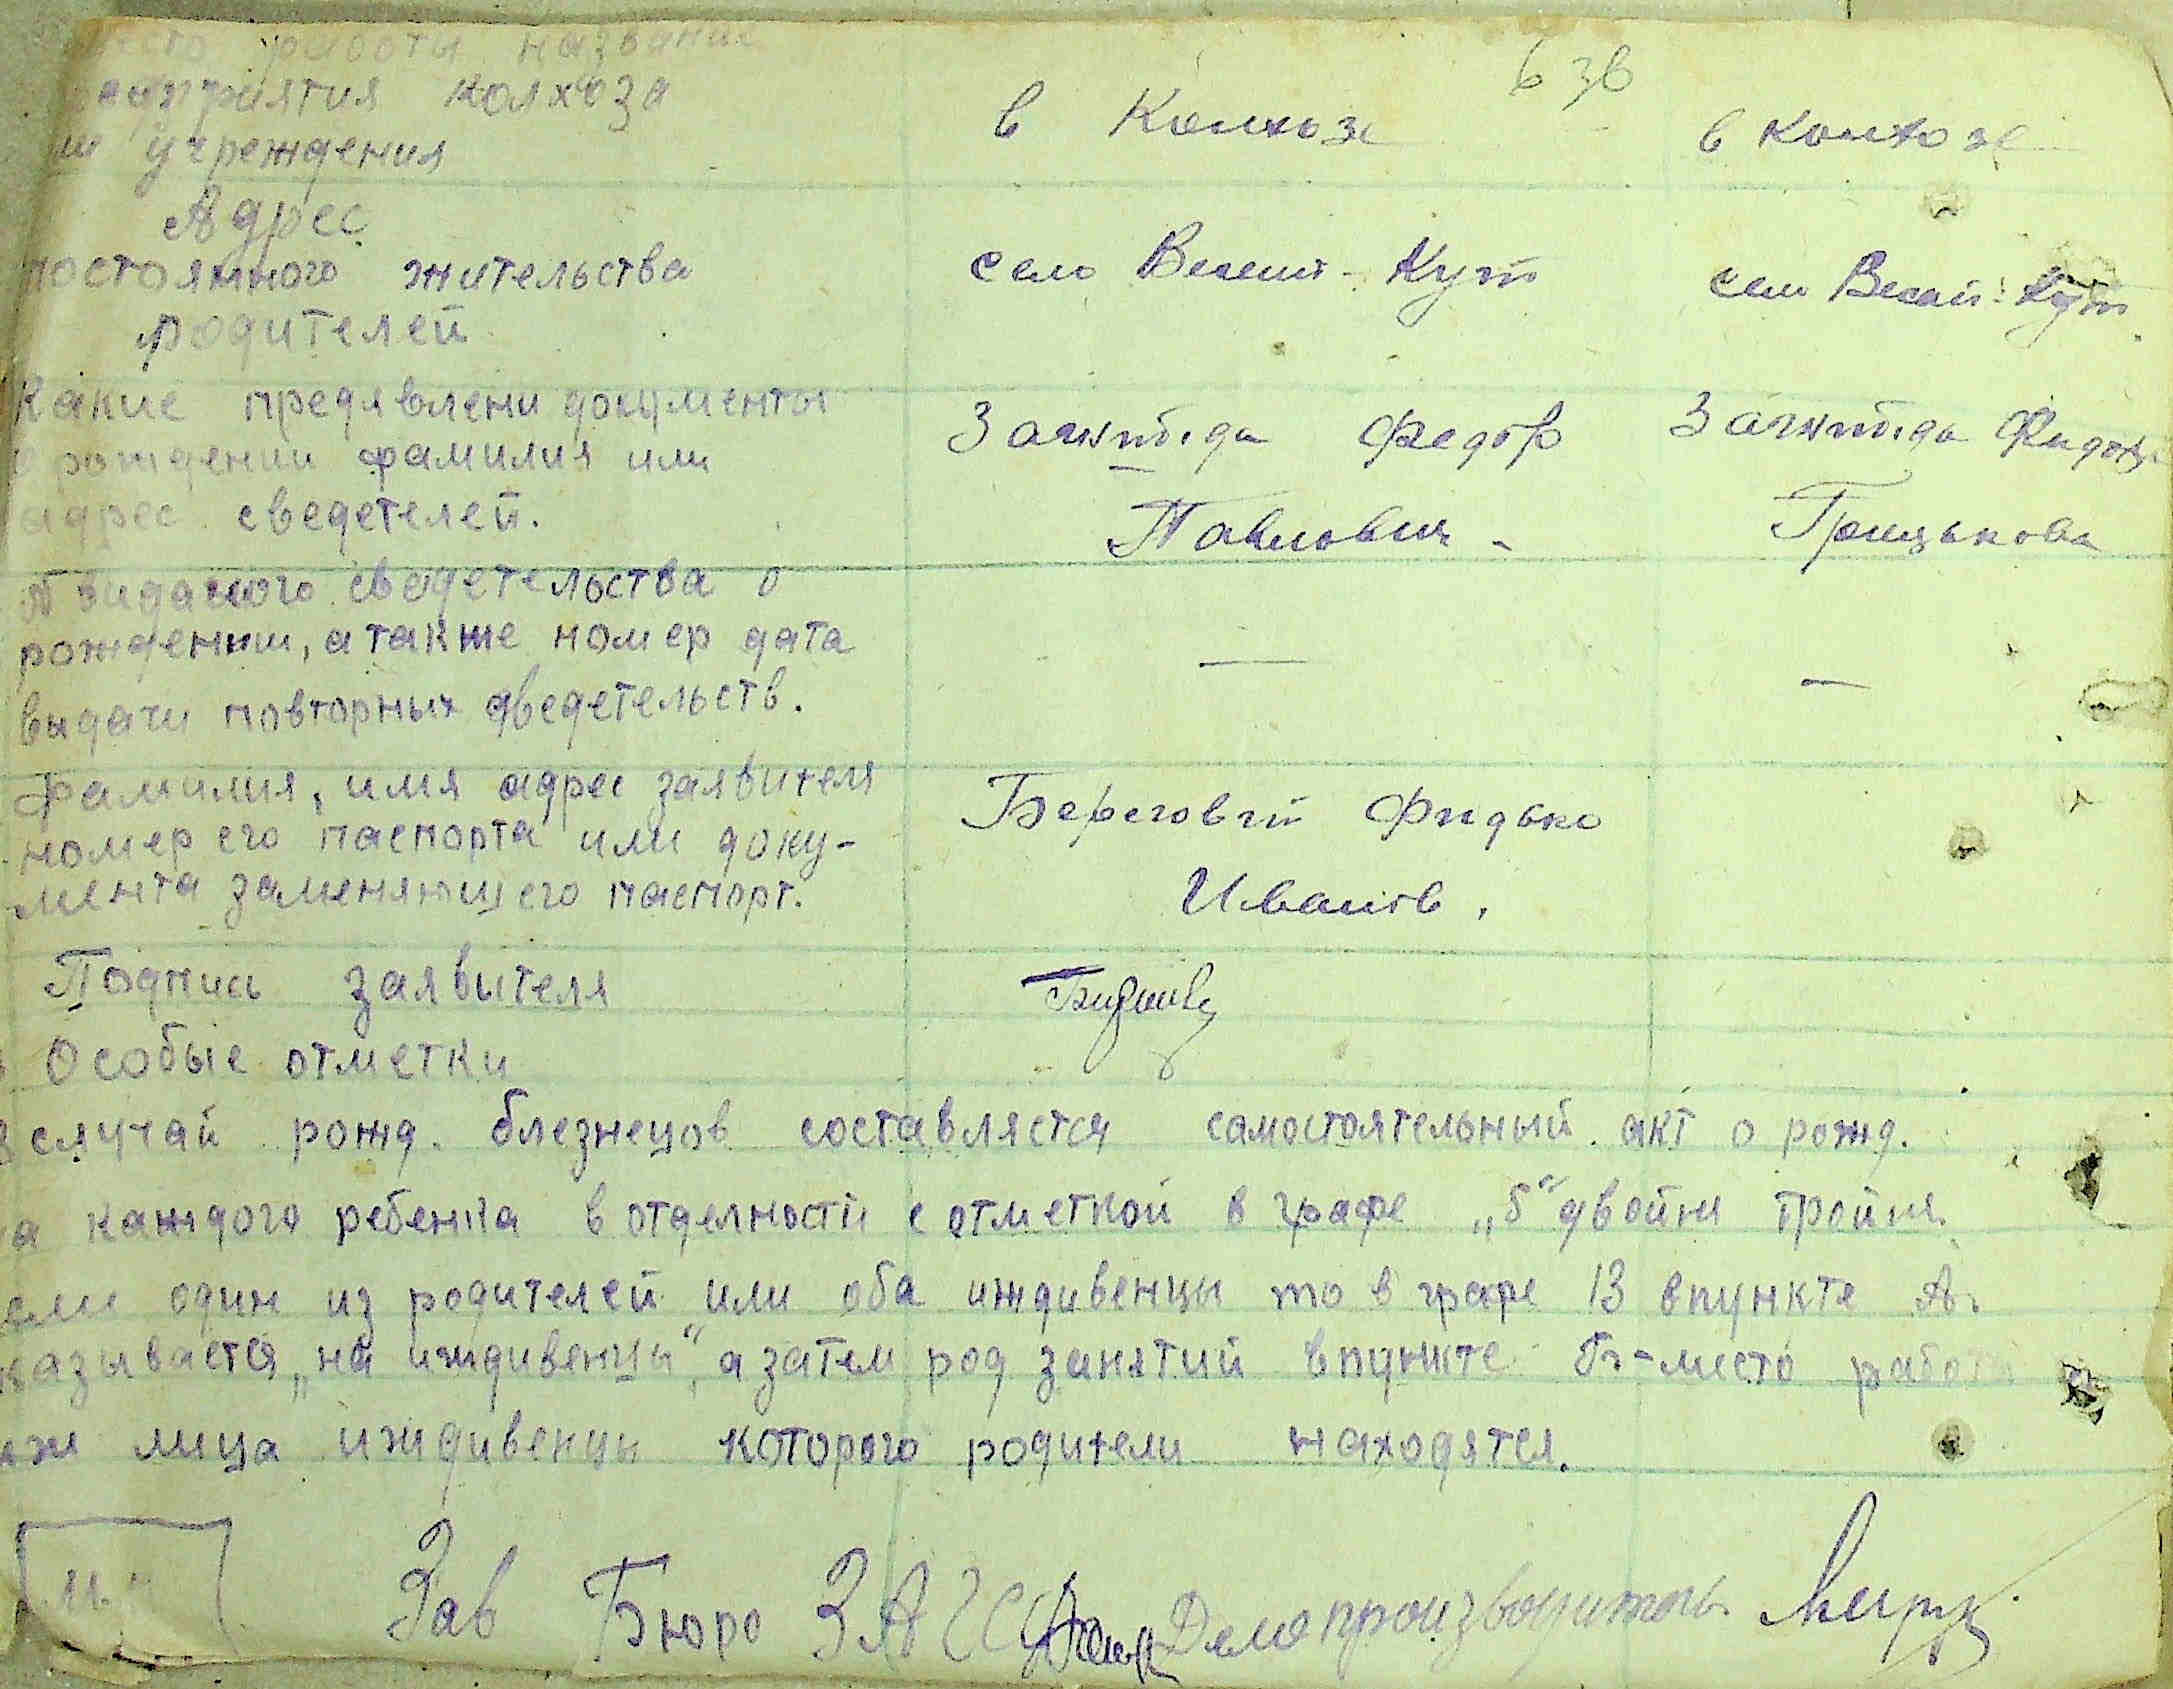 место работы название
предприятия колхоза
или учреждения
6 зв
в Колхозе
в колхозе
Адрес
постоянного жительства
родителей
село Веселий-Кут
село Веселий-Кут
Какие предявлени документы
о рождении фамилия или
адрес сведетелей.
Федор
Павлович -
Грицькова
сведетельства о
рождении, а также номер дата
выдачи повторных сведетельств.
—
—
Фамилия, имя адрес заявителя
номер его паспорта или доку-
мента заменяющего паспорт.
Береговий Фидько
Иванов.
Подпись заявителя
Особые отметки
В случай рожд. блезнецов составляется самостоятельный акт о рожд.
на каждого ребенка в отделности с отметкой в графе „5" двойня тройня.
если один из родителей или оба иждивенцы то в графе 13 в пункте А.
указывается „на иждивенци", а затем род занятий в пункте Б-место работы
лица иждивенцы которого родители находятся.
Зав Бюро ЗАГС Делопроизводитель